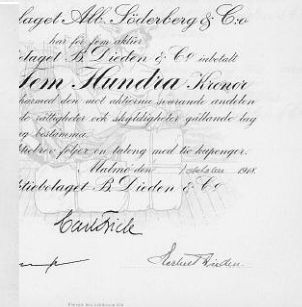 laget Alb. Söderberg & C:o
har för fem aktier
olaget B. Dieden & Co inbetalt
Fem Hundra Kronor
härmed den mot aktierna svarande andelen
de rättigheter och skyldigheter gällande lag
ng bestämma.
tiebrev följer en talong med tio kuponger.
Malmö den 1 oktober 1918.
tiebolaget B. Dieden & Co
Carl Frick
Herbert Dieden.